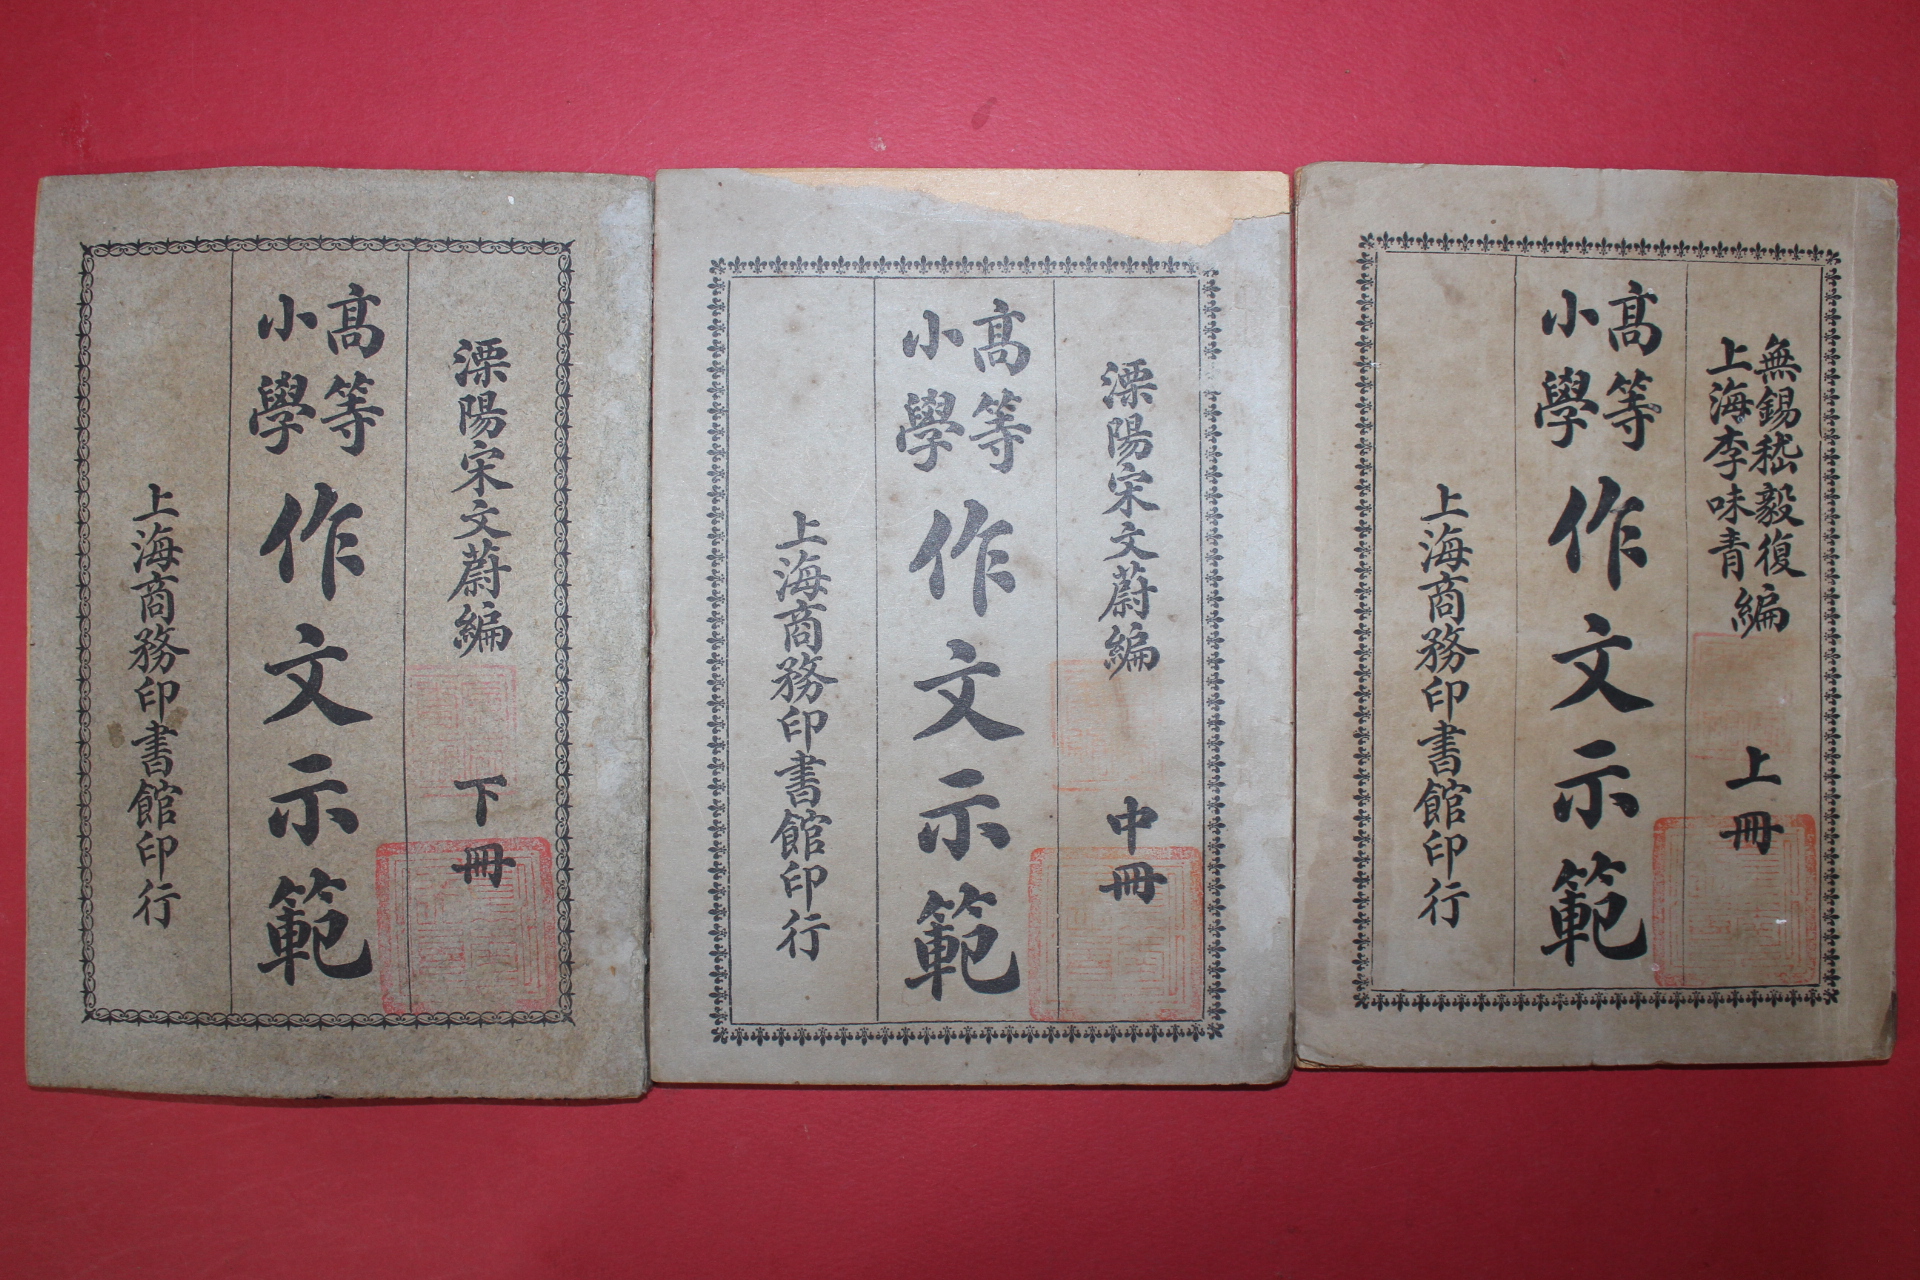 無錫嵇毅復
上海李味青編
上冊
高等
小學
作文示範
上海商務印書館印行
溧陽宋文蔚編
中冊
高等
小學
作文示範
上海商務印書館印行
溧陽宋文蔚編
下冊
高等
小學
作文示範
上海商務印書館印行